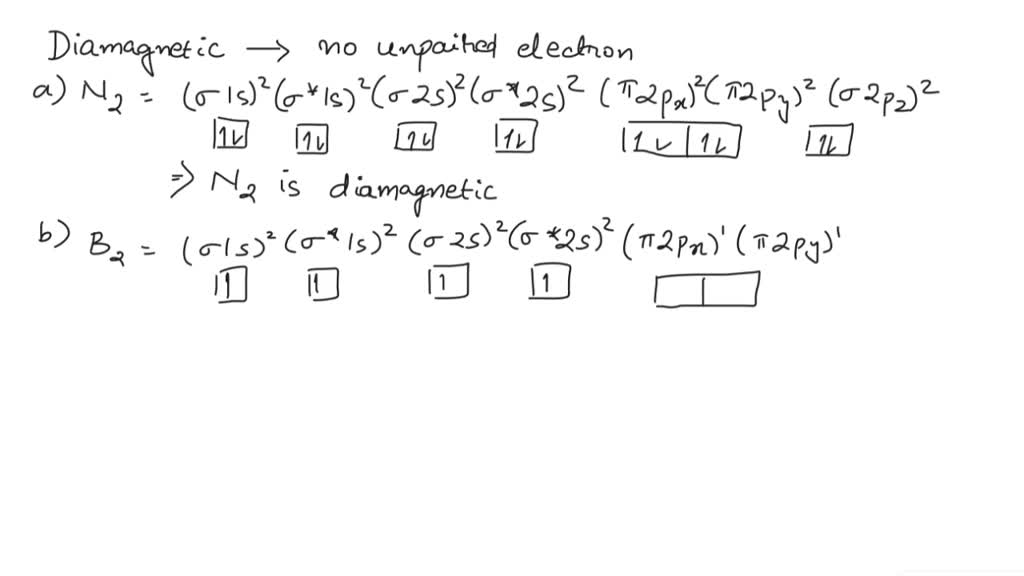 Diamagnetic → no unpaired electron
a) N₂ = (σ1s)² (σ*1s)² (σ2s)² (σ*2s)² (π2px)² (π2py)² (σ2pz)²
1↓ 1↓ 1↓ 1↓ 1↓ 1↓ 1↓
⇒ N₂ is diamagnetic
b) B₂ = (σ1s)² (σ*1s)² (σ2s)² (σ*2s)² (π2px)¹ (π2py)¹
1 1 1 1